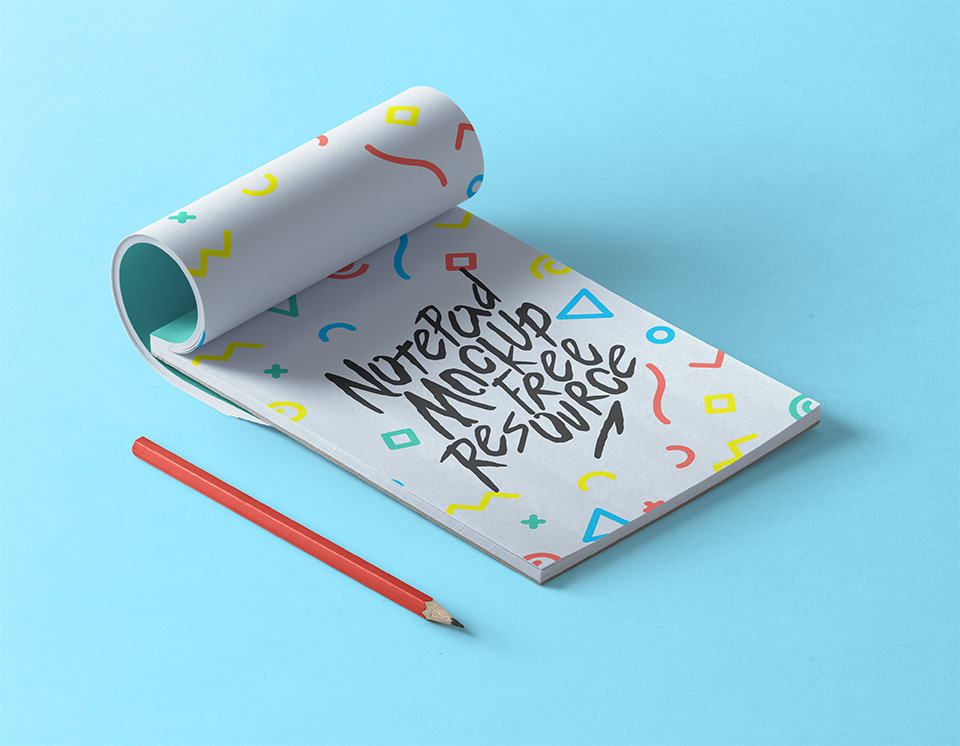 NotePad
Mockup
Free
Resource